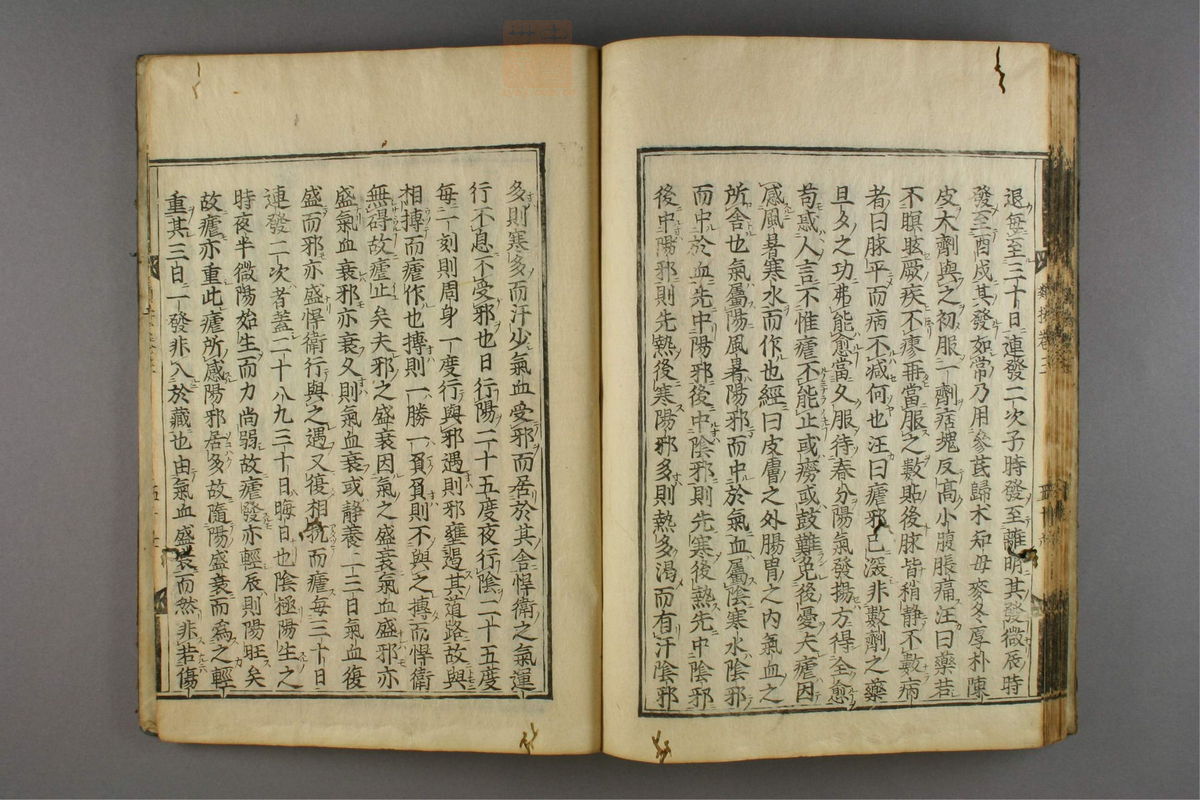 退每至三十日連發二次子時發至薤明其發微辰時
發至酉戌其發如常乃用參芪歸术知母麥冬厚朴陳
皮大劑與之初服一劑痞塊反高小腹脹痛汪曰藥若
不瞑眩厥疾不瘳再當服之數貼後脉皆稍靜不數病
者曰脉平而病不减何也汪曰瘧邪已深非數劑之藥
旦夕之功弗能愈當久服待春分陽氣發揚方得全愈
苟惑人言不惟瘧不能止或癆或鼓難免後憂夫瘧因
感風暑寒水而作也經曰皮膚之外腸胃之内氣血之
所舍也氣屬陽風暑陽邪而中於氣血屬陰寒水陰邪
而中於血先中陽邪後中陰邪則先寒後熱先中陰邪
後中陽邪則先熱後寒陽邪多則熱多渴而有汗陰邪
多則寒多而汗少氣血受邪而居於其舍悍衛之氣運
行不息不受邪也日行陽二十五度夜行陰二十五度
每一刻則周身一度行與邪遇則邪壅遏其道路故與
相搏而瘧作也搏則一勝一負負則不與之搏而悍衛
無碍故瘧止矣夫邪之盛衰因氣之盛衰氣血盛邪亦
盛氣血衰邪亦衰久則氣血衰或靜養二三日氣血復
盛而邪亦盛悍衛行與之遇又復相抗而瘧每三十日
連發二次者蓋二十八九三十日晦日也陰極陽生之
時夜半微陽始生而力尚弱故瘧發亦輕辰則陽旺矣
故瘧亦重此瘧所感陽邪居多故隨陽盛衰而爲之輕
重其三日一發非入於藏也由氣血盛衰而然非若傷